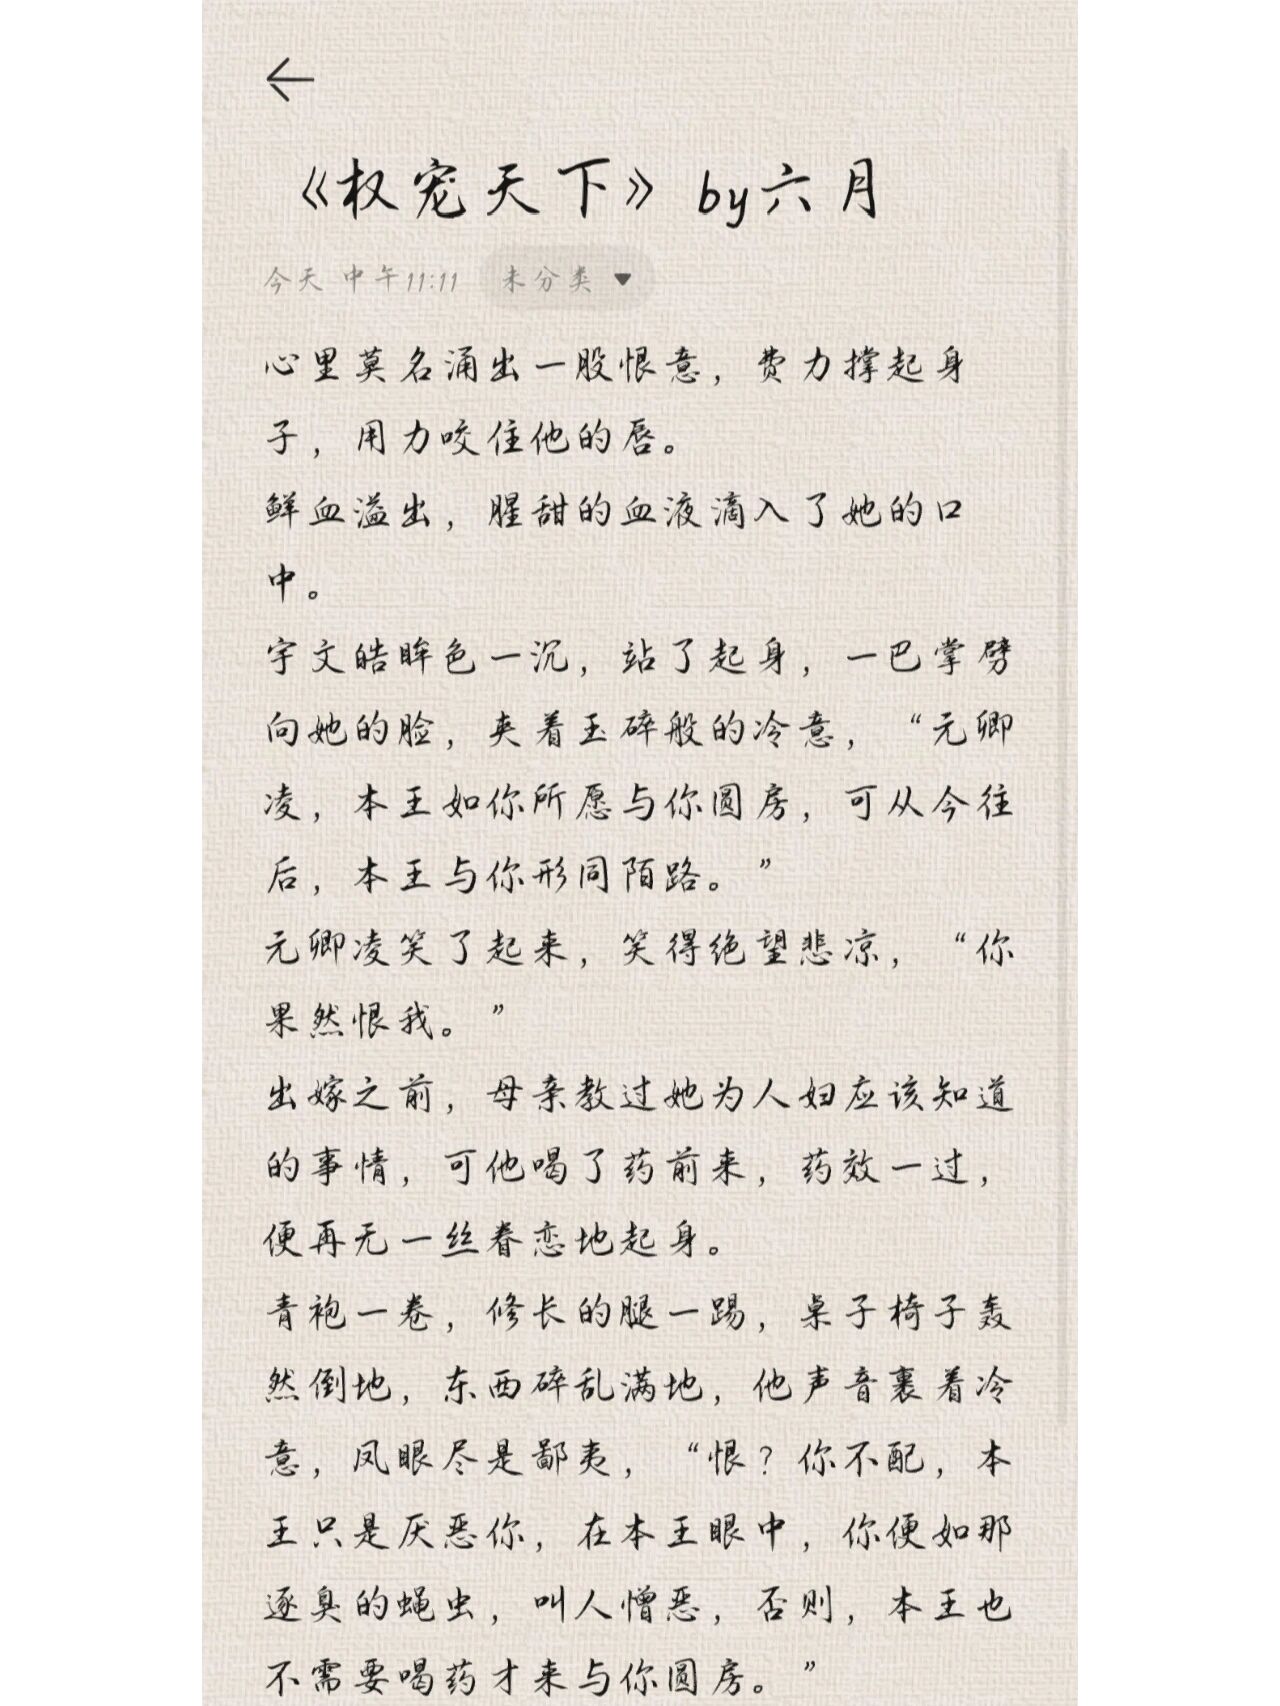 《权宠天下》by六月
今天 中午11:11 未分类
心里莫名涌出一股恨意，费力撑起身
子，用力咬住他的唇。
鲜血溢出，腥甜的血液滴入了她的口
中。
宇文皓眸色一沉，站了起身，一巴掌劈
向她的脸，夹着玉碎般的冷意，“元卿
凌，本王如你所愿与你圆房，可从今往
后，本王与你形同陌路。”
元卿凌笑了起来，笑得绝望悲凉，“你
果然恨我。”
出嫁之前，母亲教过她为人妇应该知道
的事情，可他喝了药前来，药效一过，
便再无一丝眷恋地起身。
青袍一卷，修长的腿一踢，桌子椅子轰
然倒地，东西碎乱满地，他声音裹着冷
意，凤眼尽是鄙夷，“恨？你不配，本
王只是厌恶你，在本王眼中，你便如那
逐臭的蝇虫，叫人憎恶，否则，本王也
不需要喝药才来与你圆房。”